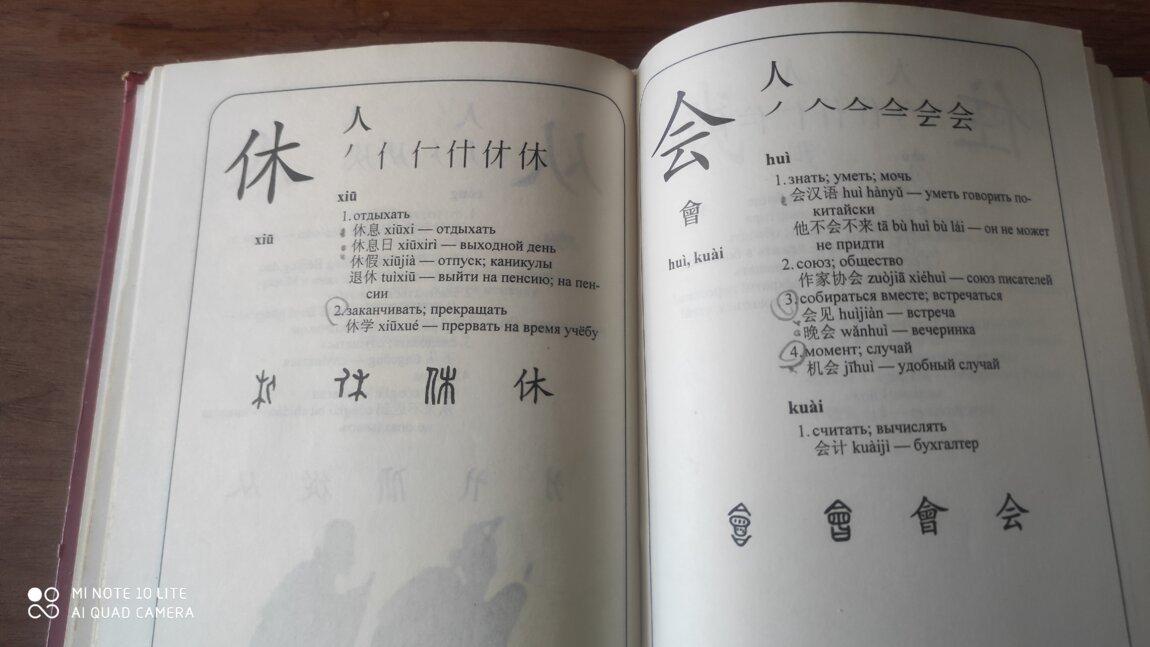 休
人
丿 亻 仁 什 休 休
xiū
xiū
1. отдыхать
休息 xiūxi — отдыхать
休息日 xiūxirì — выходной день
休假 xiūjià — отпуск; каникулы
退休 tuìxiū — выйти на пенсию; на пен-
сии
2. заканчивать; прекращать
休学 xiūxué — прервать на время учёбу
休
会
人
會
huì, kuài
huì
1. знать; уметь; мочь
会汉语 huì hànyǔ — уметь говорить по-
китайски
他不会不来 tā bù huì bù lái — он не может
не придти
2. союз; общество
作家协会 zuòjiā xiéhuì — союз писателей
3. собираться вместе; встречаться
会见 huìjiàn — встреча
晚会 wǎnhuì — вечеринка
4. момент; случай
机会 jīhuì — удобный случай
kuài
1. считать; вычислять
会计 kuàijì — бухгалтер
會 会
MI NOTE 10 LITE
AI QUAD CAMERA